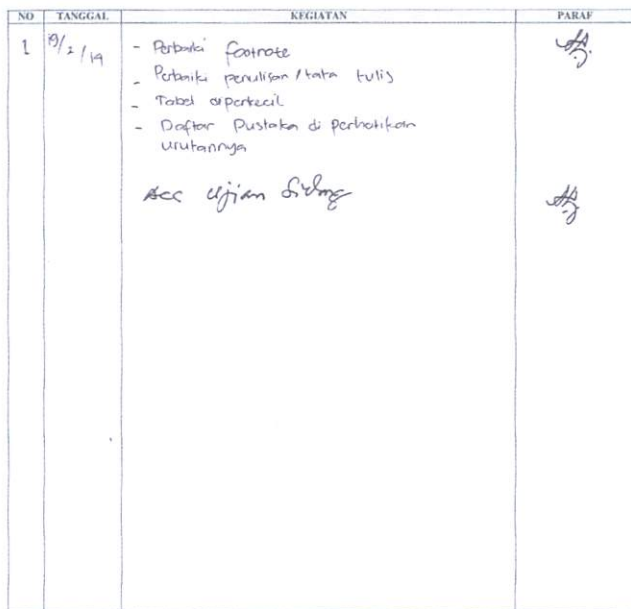 NO TANGGAL KEGIATAN PARAF
1 19/2/19 - Perbaiki footnote
- Perbaiki penulisan / tata tulis
- Tabel diperkecil
- Daftar Pustaka di perhatikan
urutannya
Acc Ujian Sidang